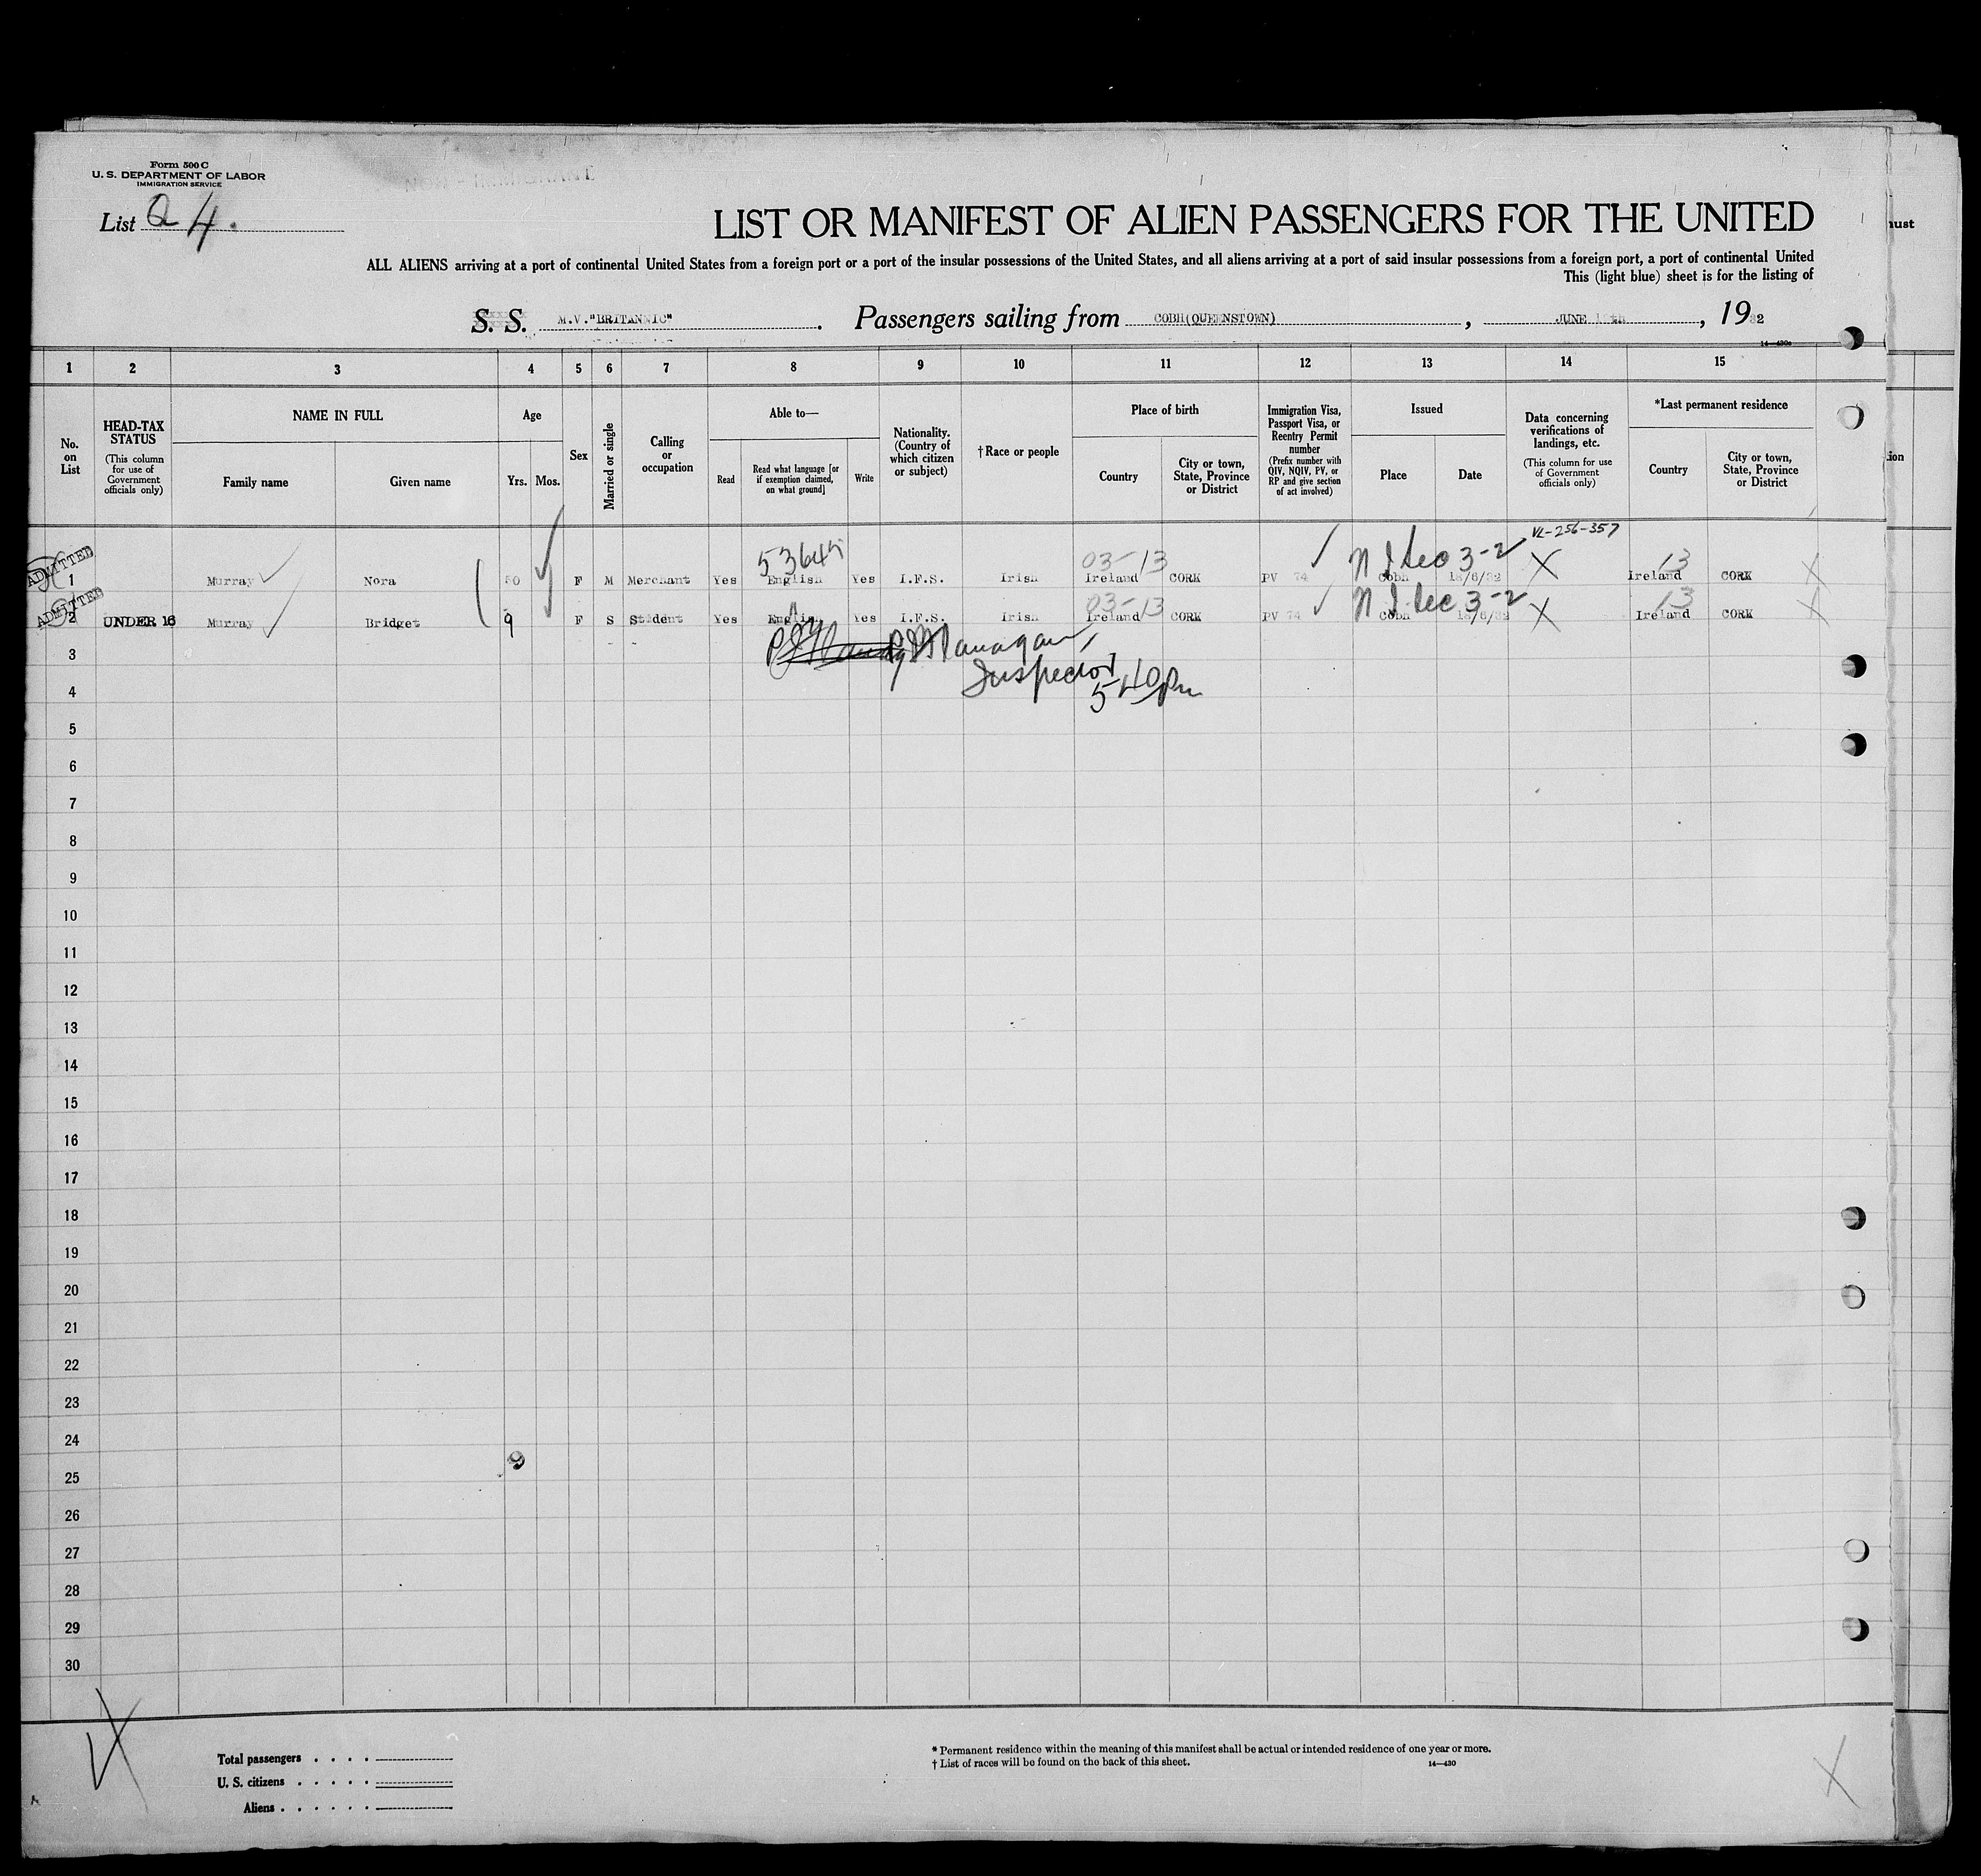 Form 500 C
U. S. DEPARTMENT OF LABOR
IMMIGRATION SERVICE
List 4.
LIST OR MANIFEST OF ALIEN PASSENGERS FOR THE UNITED
ALL ALIENS arriving at a port of continental United States from a foreign port or a port of the insular possessions of the United States, and all aliens arriving at a port of said insular possessions from a foreign port, a port of continental United
This (light blue) sheet is for the listing of
S. S. M.V."BRITANNIC". Passengers sailing from COBH(QUEENSTOWN), JUNE, 1932
14—430a
1 2 3 4 5 6 7 8 9 10 11 12 13 14 15
No. on List
HEAD-TAX STATUS (This column for use of Government officials only)
NAME IN FULL
Family name
Given name
Age
Yrs.
Mos.
Sex
Married or single
Calling or occupation
Able to—
Read
Read what language [or if exemption claimed, on what ground]
Write
Nationality. (Country of which citizen or subject)
†Race or people
Place of birth
Country
City or town, State, Province or District
Immigration Visa, Passport Visa, or Reentry Permit number (Prefix number with QIV, NQIV, PV, or RP and give section of act involved)
Issued
Place
Date
Data concerning verifications of landings, etc. (This column for use of Government officials only)
*Last permanent residence
Country
City or town, State, Province or District
VL-256-357
ADMITTED
03-13
13
1 Murray Nora 50 F M Merchant Yes English Yes I.F.S. Irish Ireland CORK PV 74 Cobh 18/6/32 X Ireland CORK
ADMITTED
03-13
13
2 UNDER 16 Murray Bridget 9 F S Student Yes English Yes I.F.S. Irish Ireland CORK PV 74 Cobh 18/6/32 X Ireland CORK
3
Inspector
4
5 40 Pm
5
6
7
8
9
10
11
12
13
14
15
16
17
18
19
20
21
22
23
24
25
26
27
28
29
30
Total passengers
U. S. citizens
Aliens
* Permanent residence within the meaning of this manifest shall be actual or intended residence of one year or more.
† List of races will be found on the back of this sheet.
14—430